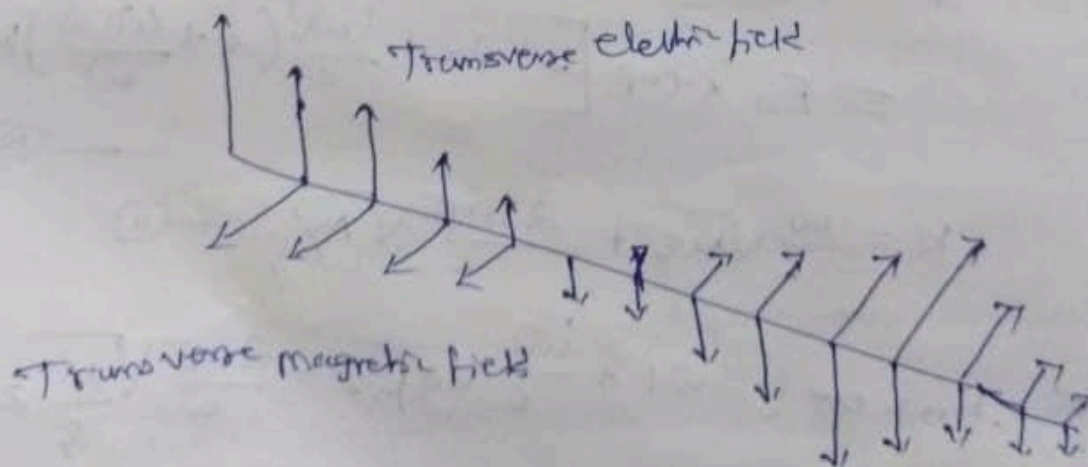 Transverse electric field
Transverse magnetic field